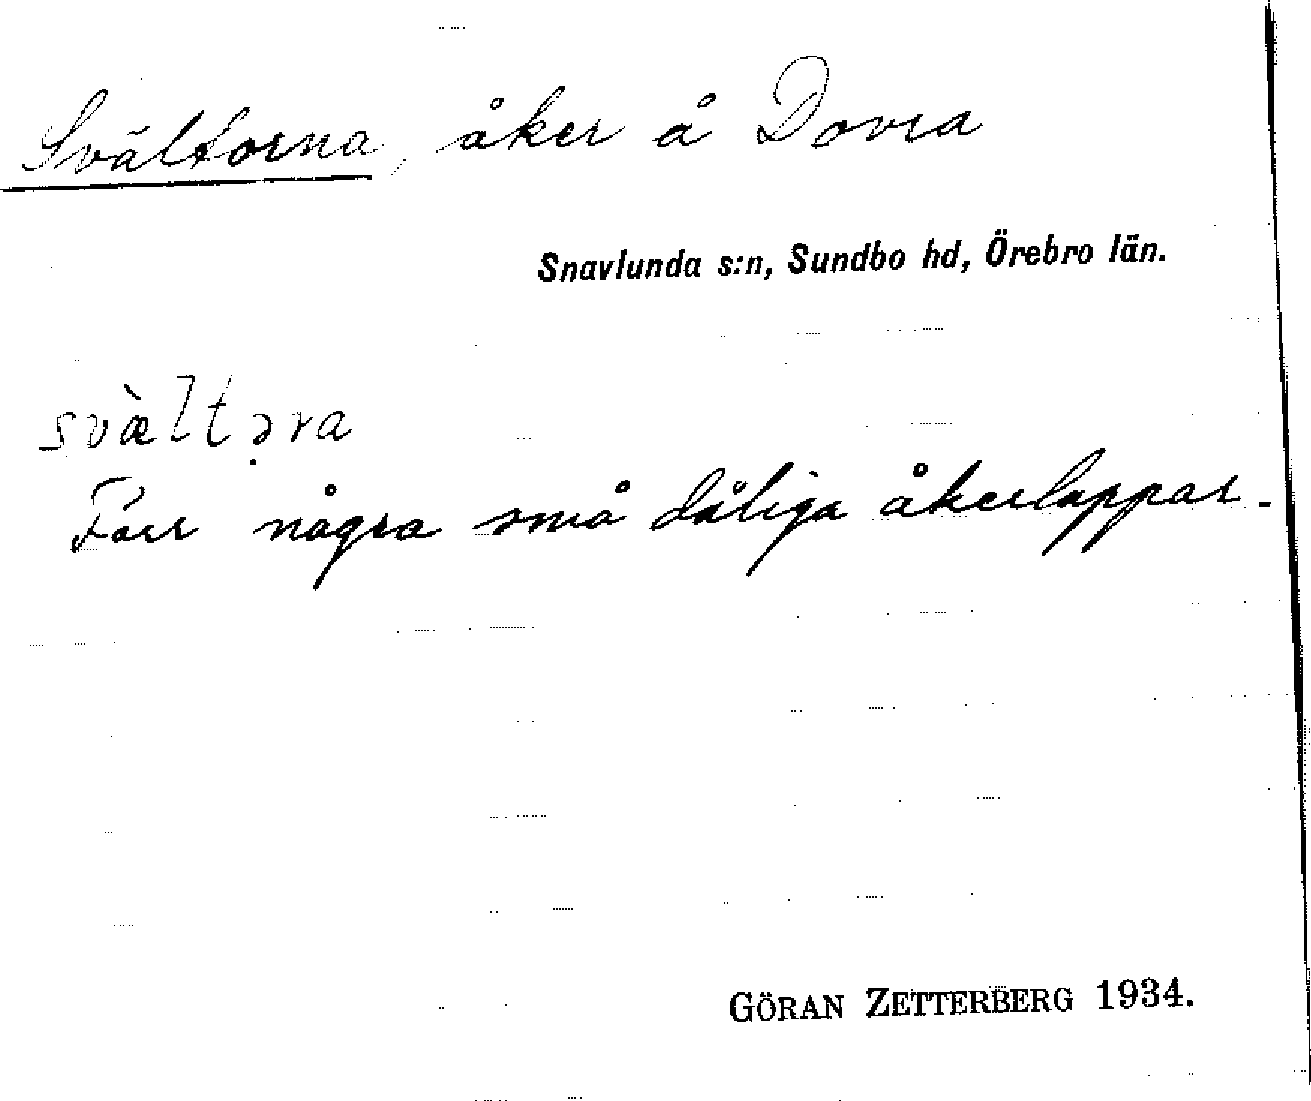 Svältorna, åker å Dovra
Snavlunda s:n, Sundbo hd, Örebro län.
svæ̀ltə̣ra
Förr några små dåliga åkerlappar.
GÖRAN ZETTERBERG 1934.